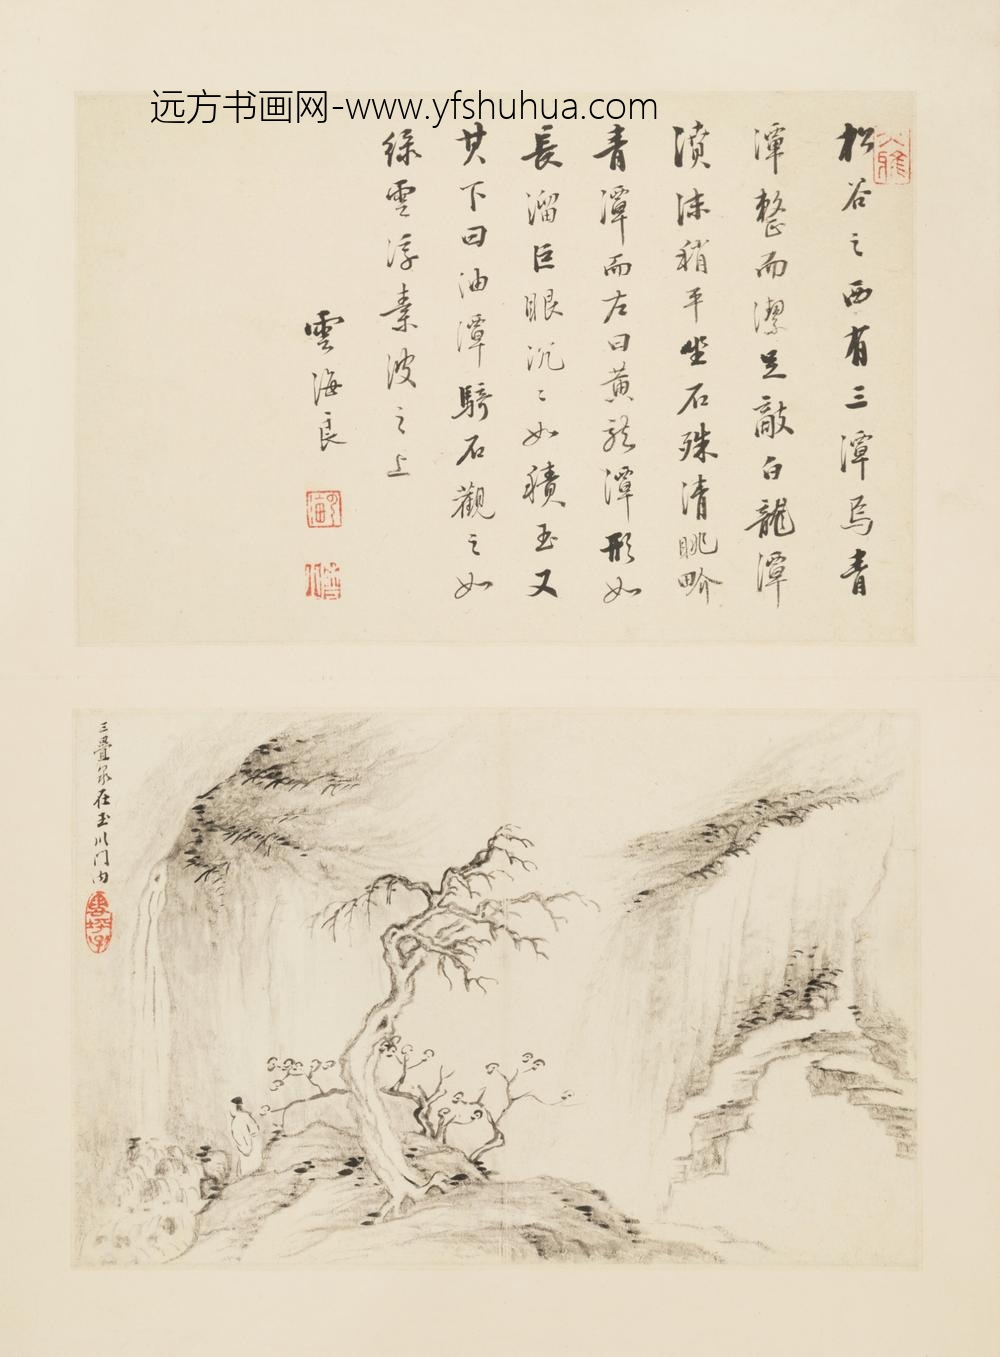 远方书画网-www.yfshuhua.com
松谷之西有三潭焉青
潭整而潔足敵白龍潭
濆沫稍平坐石殊清眺畍
青潭而左曰黄龍潭形如
長溜巨眼沉〻如積玉又
其下曰油潭騎石觀之如
綠雲浮素波之上
雲海良
三疊泉在玉川门内